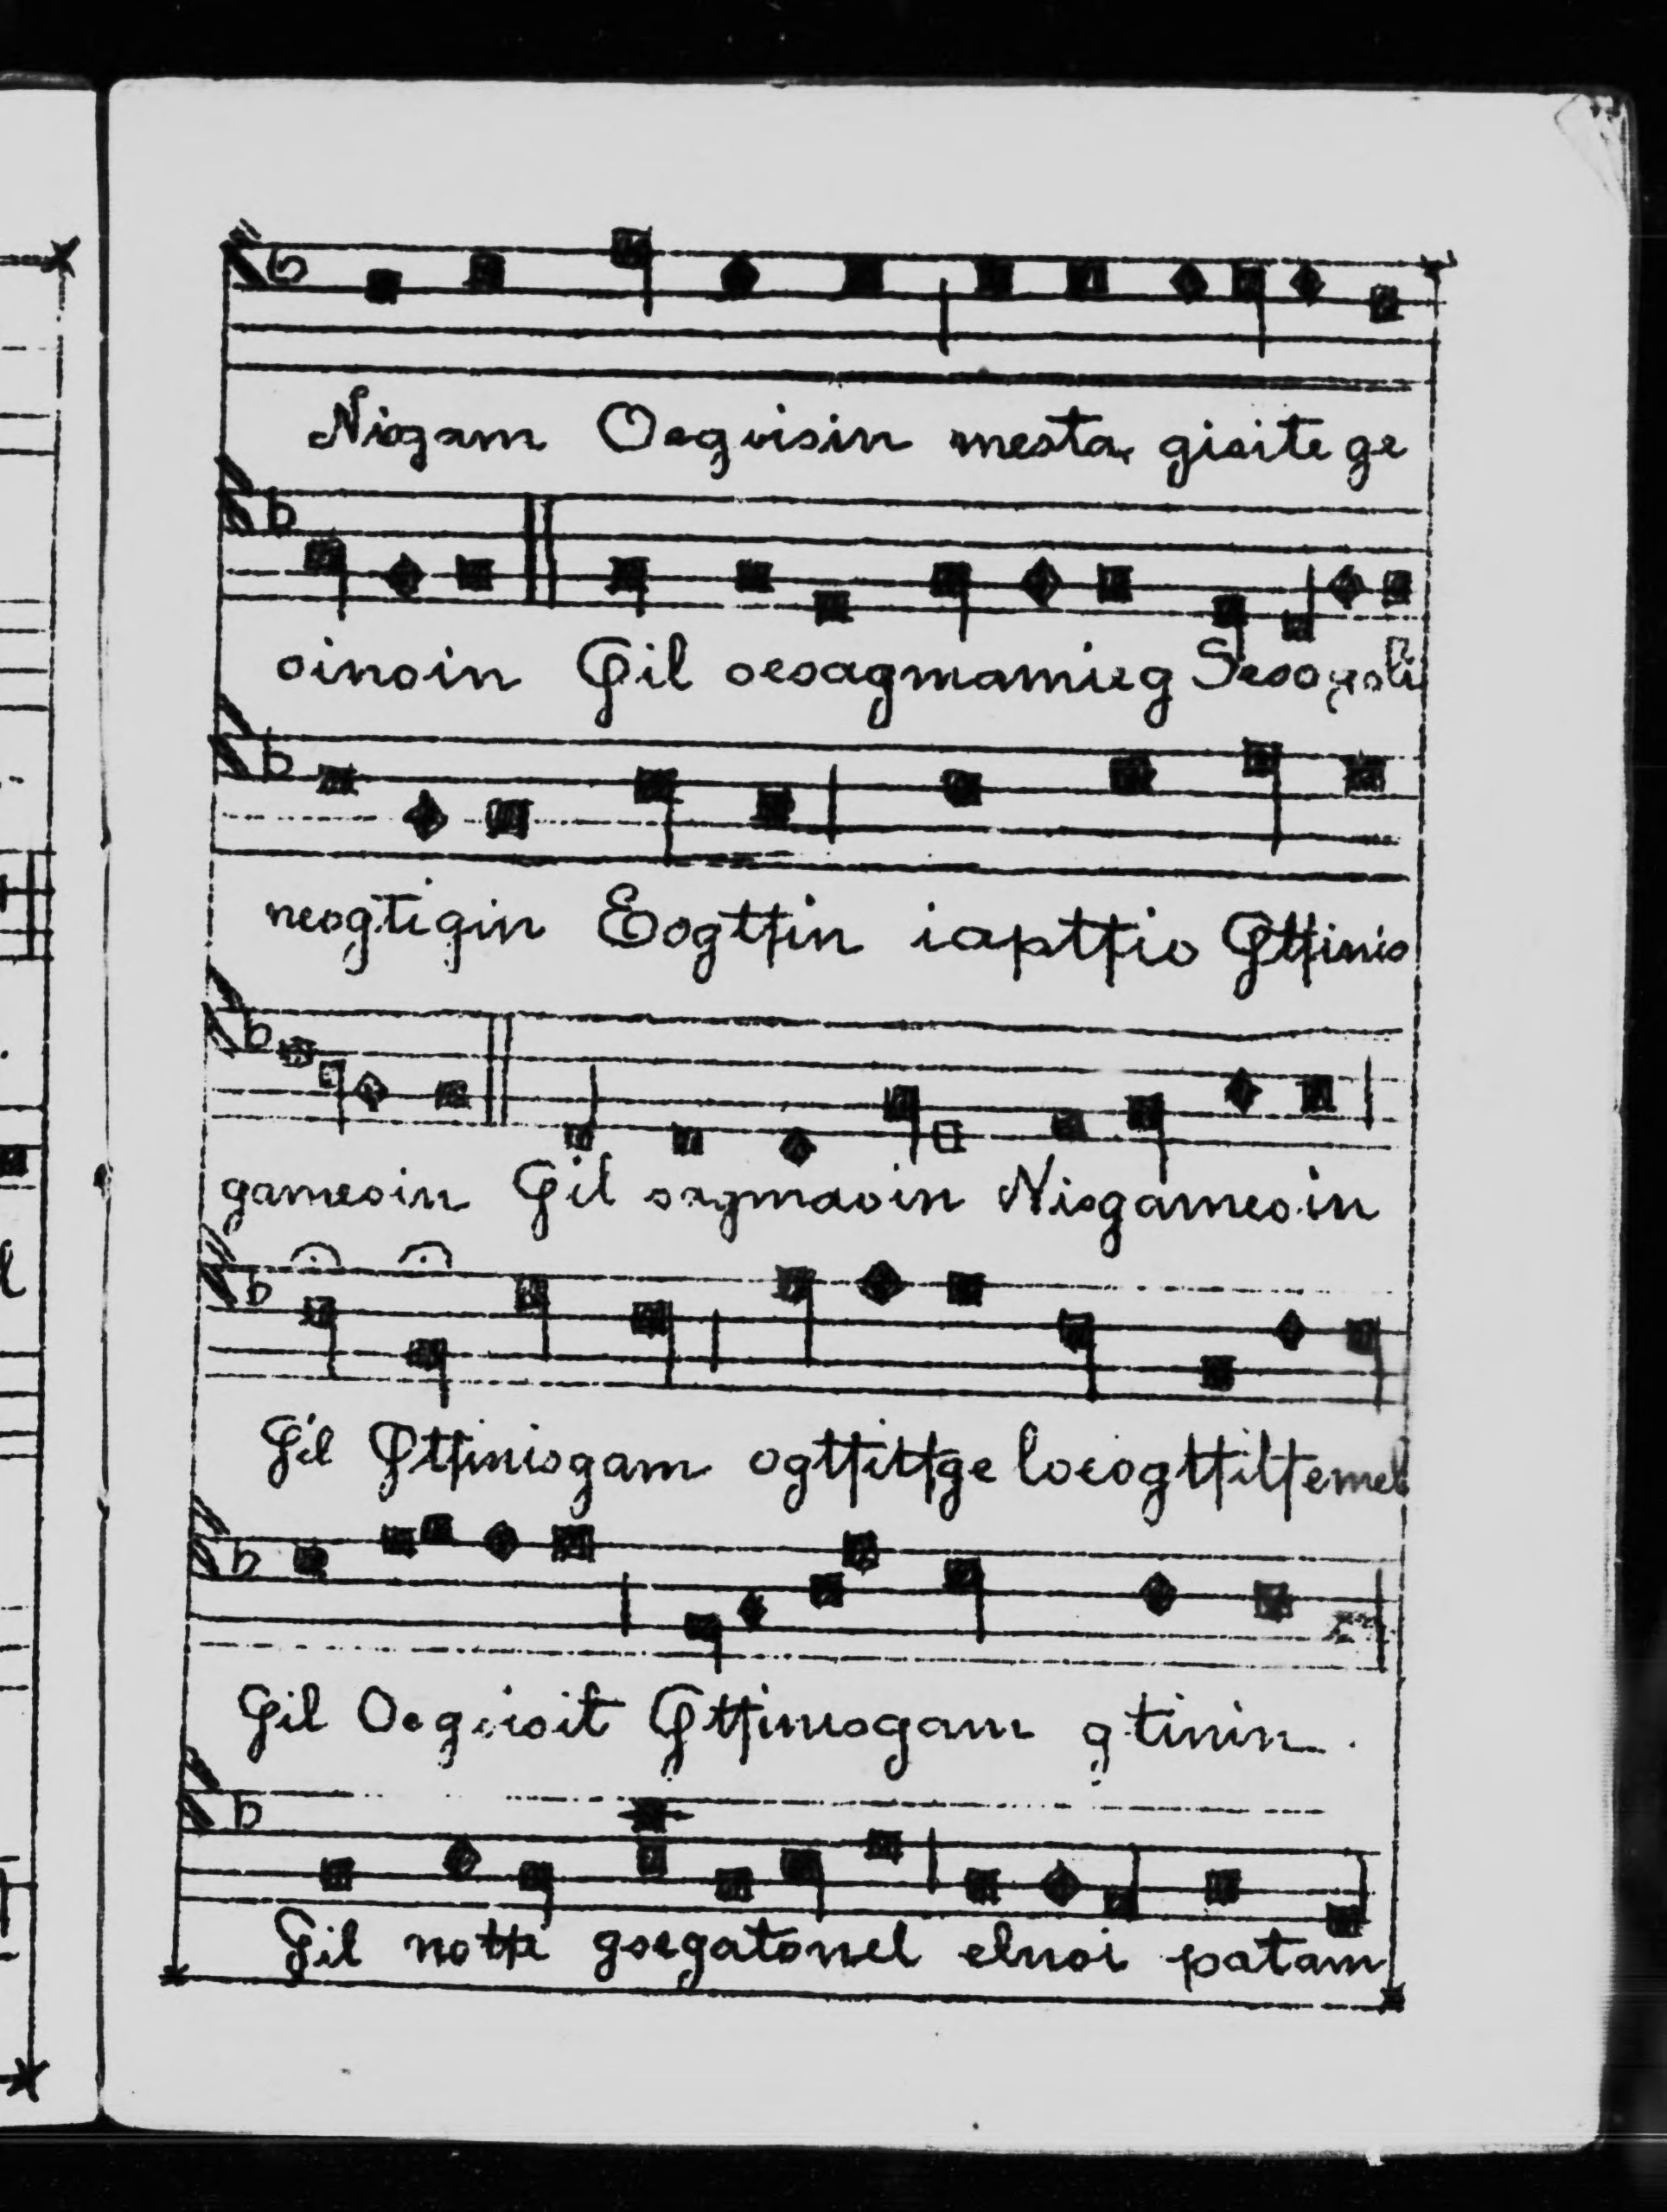 Niogam Oegvisin mesta gisite ge
oinoin Gil oesagmamieg
neogtigin Eogttin iapttio Gttinis
gameoin Gil sagmaoin Niogameoin
Gil Gttiniogam ogttittge
Gil Gttiniogam qtinin.
Gil notte gsegatonel elnoi patam